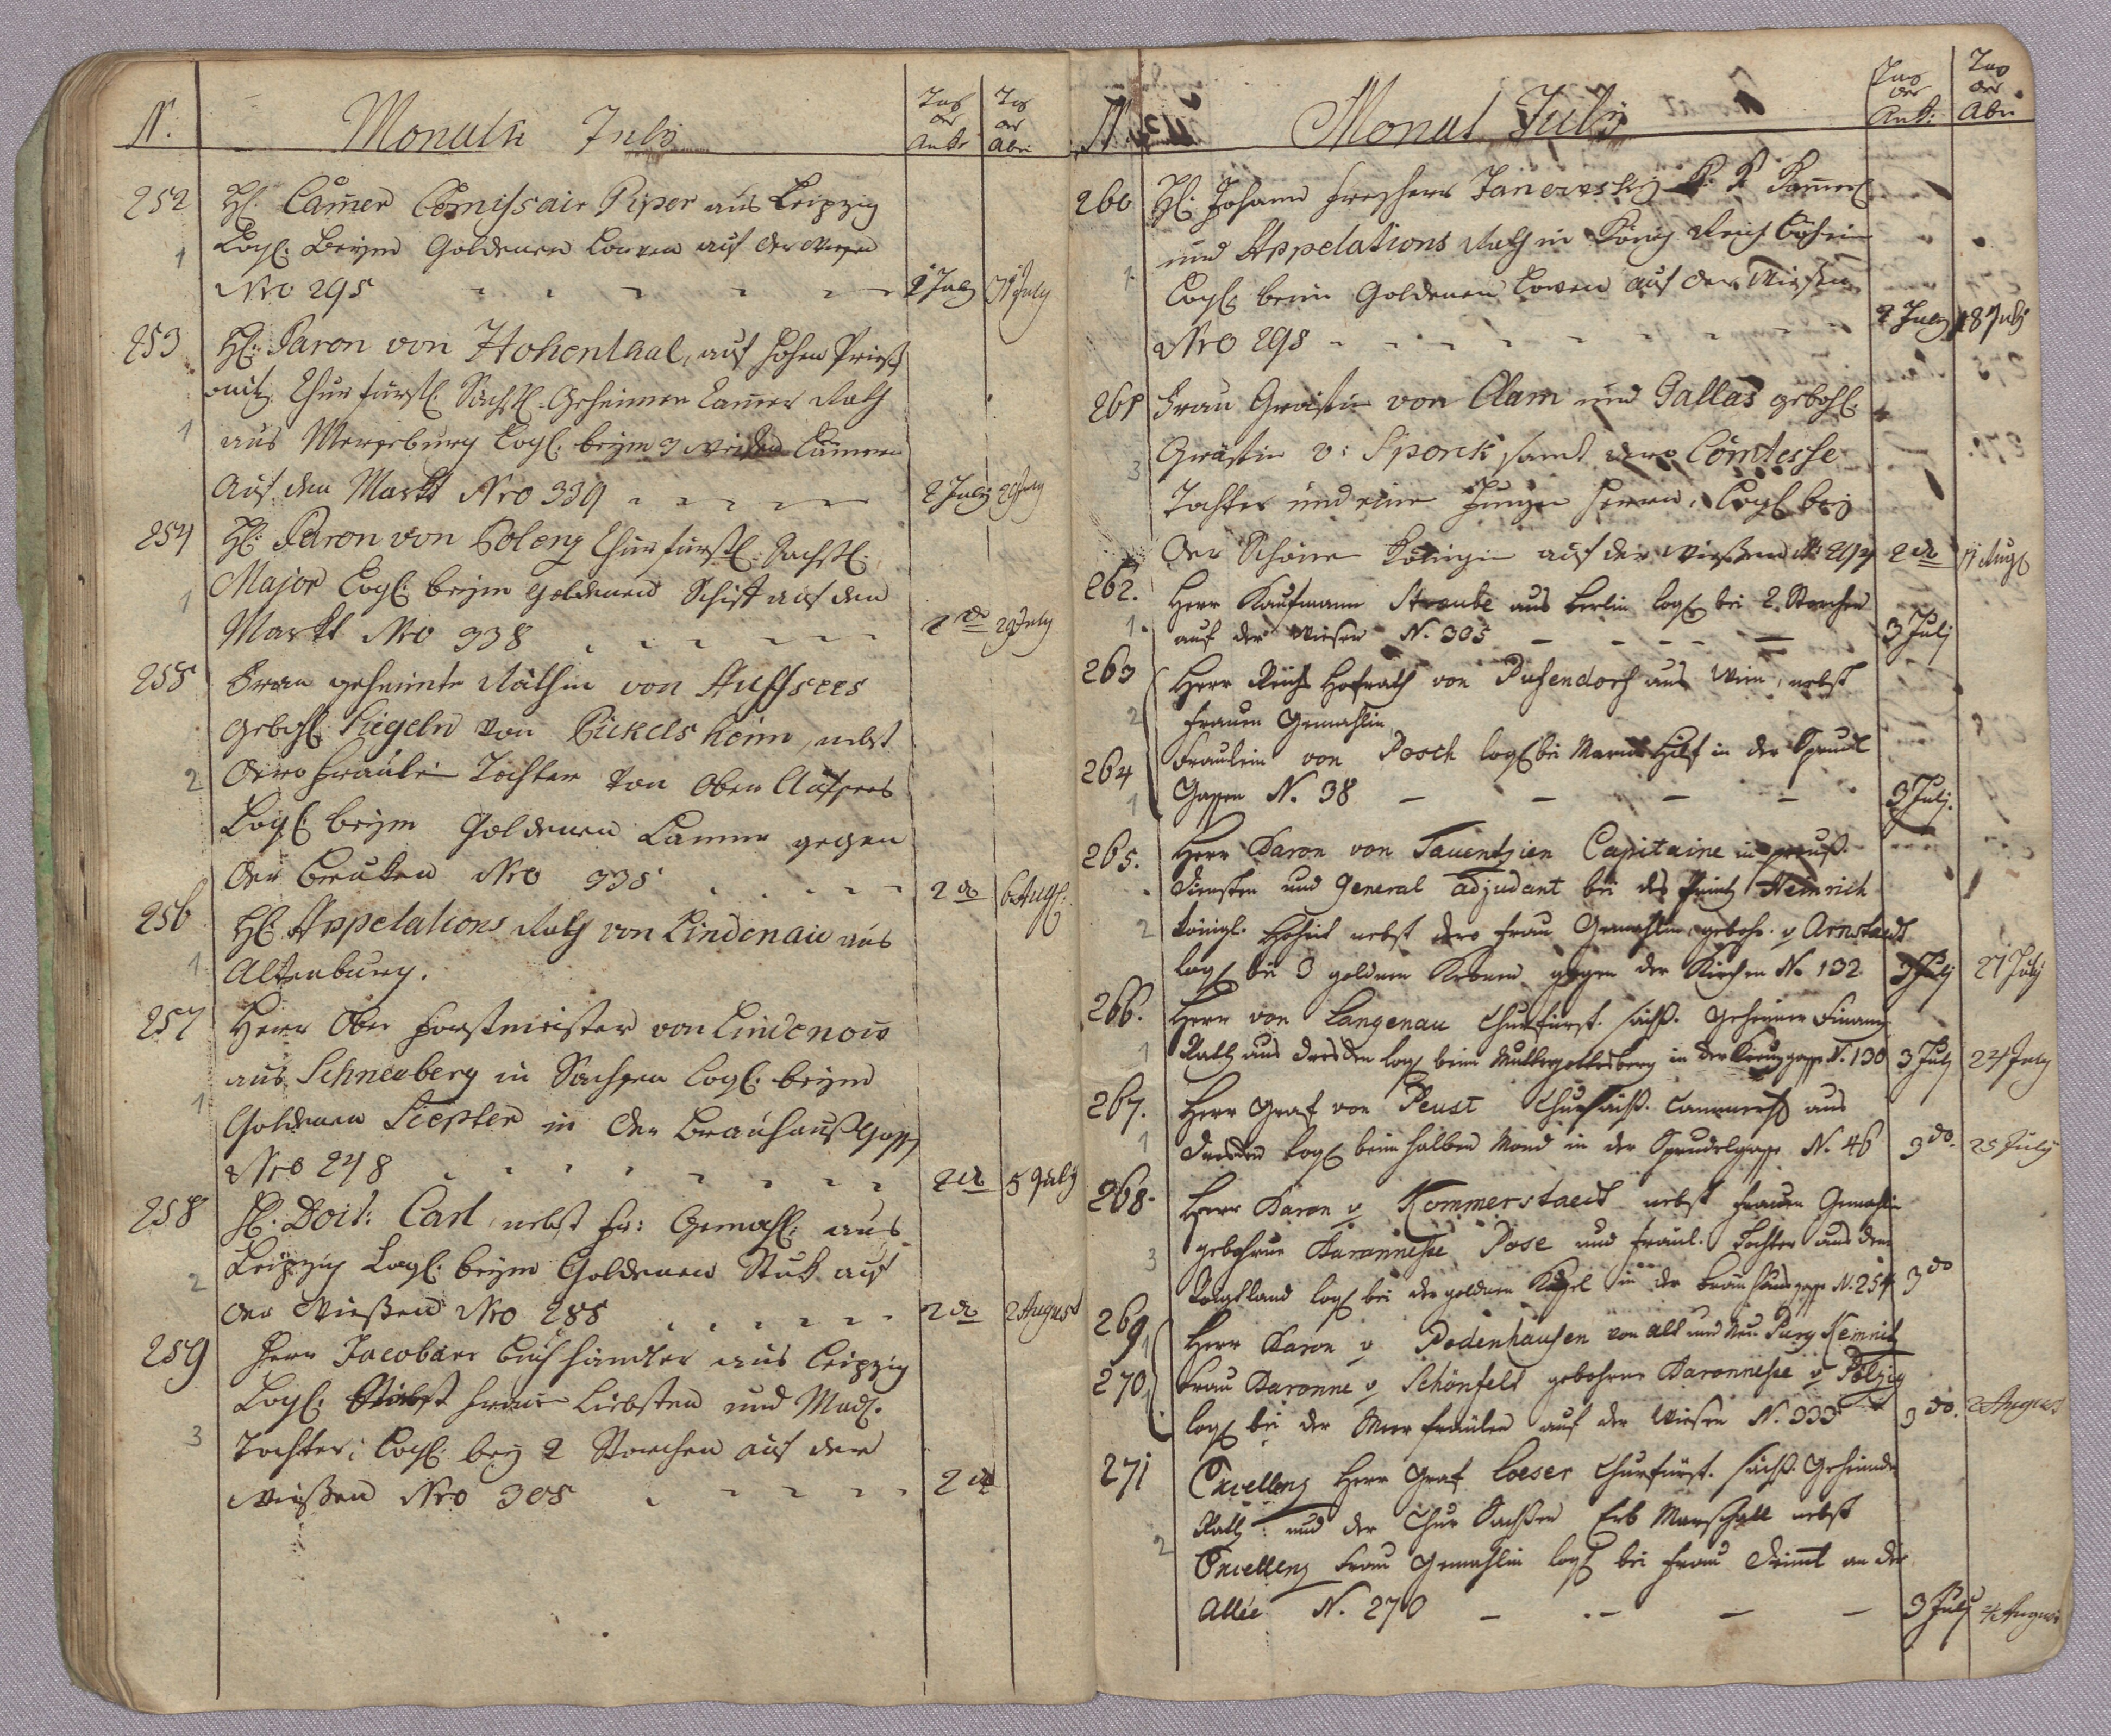 N.
Monath July
Tag der Ank:
Tag der Abr:
252
H: Cam̄er Com̄issair Piper aus Leipzig
Logl: Beym Goldenen Löwen auf der Wiesen
1
Nro 295
2 July
31 July
253
H: Baron von Hohenthaal, auf Hohen Prieß
nitz Churfürstl: Sächsl: Geheimer Cam̄er Rath
1
aus Merseburg Logl: beym 3 weißen Läm̄ern
Auf den Markt Nro 339
2 July
29 July
254
H: Baron von Polenz Churfürstl: Sächsl:
Major Logl: beym goldenen Schif auf den
1
Markt Nro 338
2 do
29 July
255
Frau geheimte Räthin von Auffsees
gebohl: Riegeln von Bickelsheim, nebst
2
Dero Fräulein Tochter von Ober Aufsees
Logl: beym Goldenen Lam̄m gegen
der Brucken Nro 335
2 do
6 Augl:
256
H: Appelations Rath von Lindenau aus
1
Altenburg.
257
Herr Ober Forstmeister von Lindenau
aus Schneeberg in Sachsen Logl: beym
1
Goldenen Scepter in der Breuhaußgass
Nro 248
2 do
5 July
258
H: Doct: Carl, nebst Fr: Gemahl: aus
Leipzig Logl: beym Goldenen Stuck auf
2
der Wießen Nro 288
2 do
2 August
259
Herr Jacobäer Buchhändler aus Leipzig
Logl: Nebst Frauen Liebsten und Madl:
3
Tochter, Logl: bey 2 Storchen auf der
Wießen Nro 305
2 do
N.
Monat July
Tag der Ank:
Tag der Abr:
260
H: Johann Freyherr Janowsky K: K Kam̄erl
und Appelations Rath in König Reich Böheim
1
Logl: beim Goldenen Löwen auf der Wießen
Nro 295
2 July
18 July
261
Frau Gräfin von Clam und Gallas gebohl:
Gräfin v: Sporck samt dero Comtesse
3
Tochter und einen Jungen Herrn, Logl bey
der Schönen Königin auf der Wießen No 297
2 do
11 Augl
262.
Herr Kaufmann Straube aus Berlin logl bei 2. Storchen
1.
auf der Wiesen N. 305
3 July
263
Herr Reichs Hofrath von Pufendorf aus Wien, nebst
2
Frauen Gemahlin
264
Fräulein von Posch logl bei Maria Hilf in der Sprudl
1
Gassen N. 38
3 July.
265.
Herr Baron von Tauentzien Capitaine in preuß.
Diensten und General Adjudant bei des Printz Heinrich
2
Königl. Hoheit nebst dero Frau Gemahlin gebohr. v Arnstaedt
logl bei 3 goldnen Kronen gegen der Kirchen No 132
3 July
27 July
266.
Herr von Langenau Churfürst. sächß. Geheimer Finanz
1
Rath aus Dresden logl beim Muttergottesberg in der Kreuzgasse N. 130
3 July
24 July
267.
Herr Graf von Peust Chursächß. Cammerhl aus
1
Dresden logl beim halben Mond in der Sprudelgasse N. 46
3 do.
25 July
268.
Herr Baron v Kommerstaedt nebst Frauen Gemahlin
gebohrne Baronnesse Pose und Fräul. Tochter aus dem
3
Voigtland logl bei der goldnen Kugel in der Bräuhausgasse N. 254
3 do
269
Herr Baron v Bodenhausen von Alt und Neu Purg Kemnitz
1
270
Frau Baronne v Schönfeld gebohrne Baronnesse v Pölzig
1
logl bei der Meer Fräulen auf der Wiesen N. 333
3 do.
2 August
271
Excellenz Herr Graf Loeser Churfürst. sächß. Geheimder
Rath und der Chur Sachsen Erb Marschall nebst
2
Excellenz Frau Gemahlin logl bei Frau an der
Allée N. 270
3 July
4 August